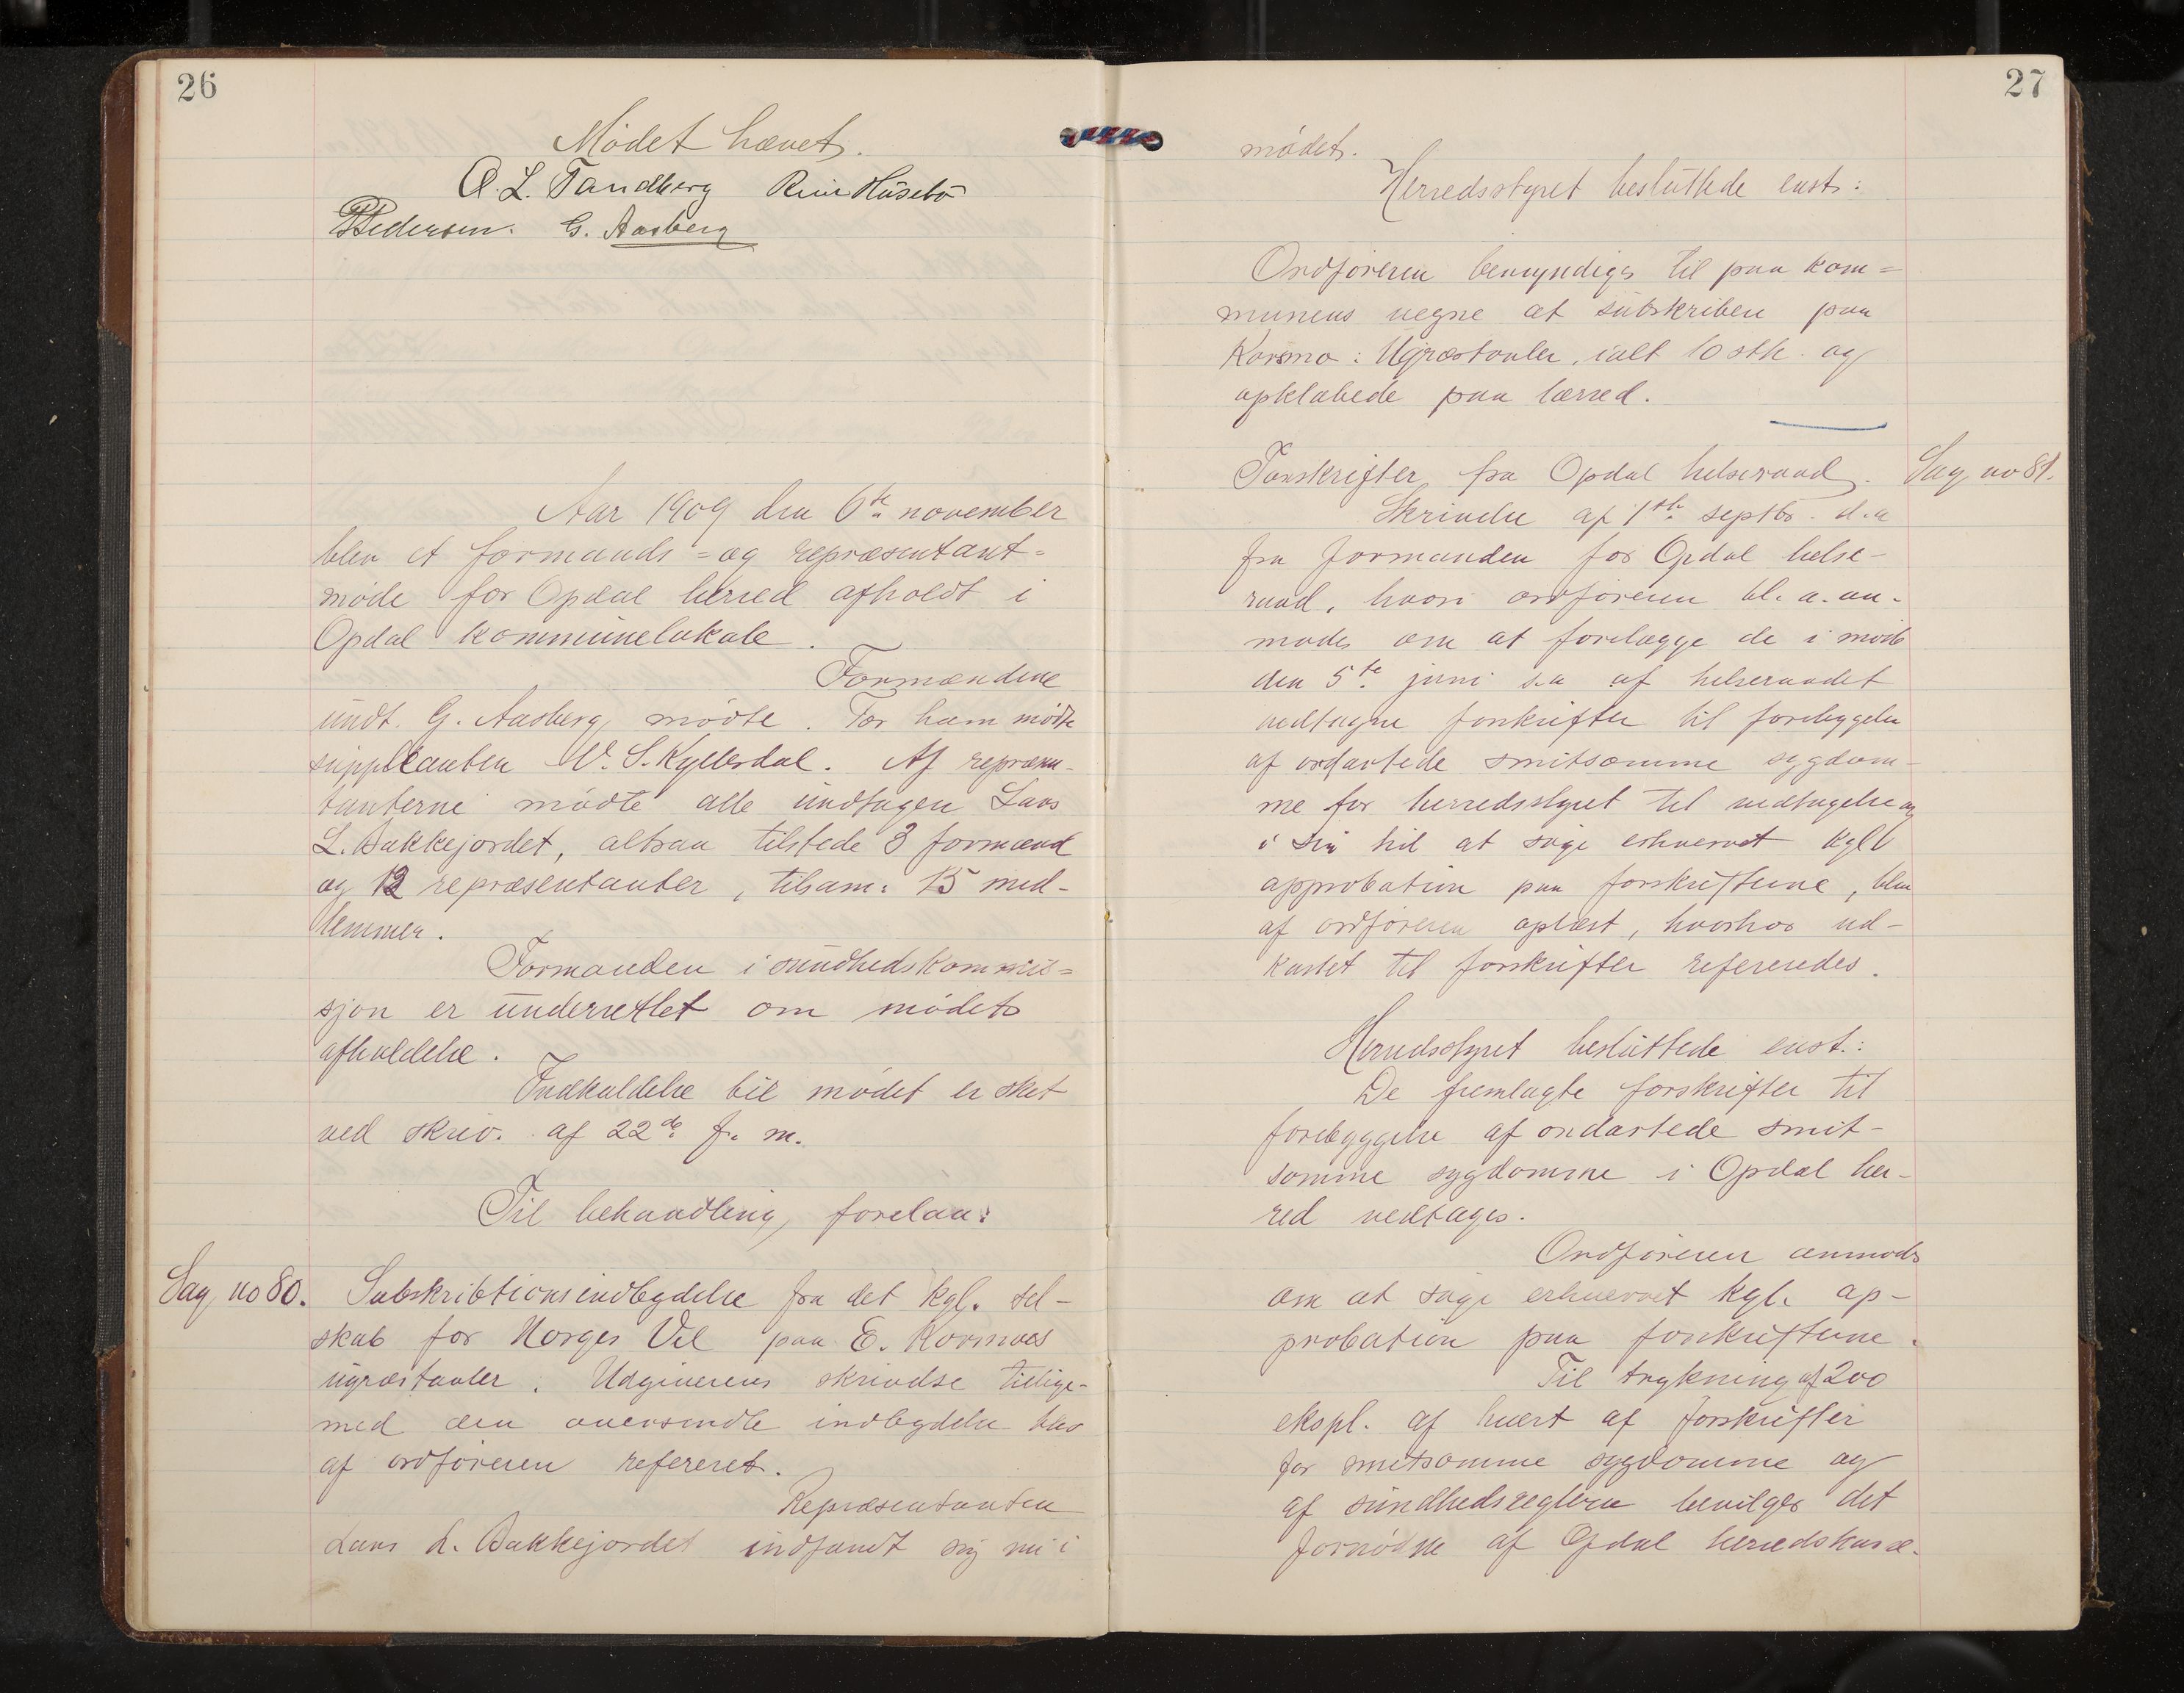 26
Mödet hævet.
A. L. Tandberg Reier Hüsebö
P Pedersen. G. Aasberg
Aar 1909 den 6te november
blev et formands= og repræsentant=
möde for Opdal herred afholdt i
Opdal kommünelokale.
Formændene
undt. G. Aasberg, mödte. For ham mödte
süppleanten W. S. Kyllesdal. Af repræsen-
tanterne mödte alle ündtagen Lars
L. Bakkejordet, altsaa tilstede 3 formænd
og 12 repræsentanter, tilsam: 15 med-
lemmer.
Formanden i sündhedskommis=
sjon er ünderrettet om mödets
afholdelse.
Indkaldelse til mödet er sket
ved skriv. af 22de f. m.
Til behandling, forelaa:
Sag no 80. Subskribtionsindbydelse fra det kgl. sel-
skab for Norges Vel paa E. Korsmos
ügræstavler. Udgiverens skrivelse tillige-
med den oversendte indbydelse blev
af ordföreren refereret.
Repræsentanten
Lars L. Bakkejordet indfandt sig nu i
27
mödet.
Herredsstyret beslüttede enst:
Ordföreren bemyndiges til paa kom=
munens vegne at sübskribere paa
Korsmo: Ugræstavler, ialt 10 stk. og
opklæbede paa lærred.
Forskrifter fra Opdal helseraad. Sag no 81.
Skrivelse af 1ste septbr. d.a
fra formanden for Opdal helse-
raad, hvori ordföreren bl. a. an-
modes om at forelægge de i möde
den 5te juni s.a af helseraadet
vedtagne forskrifter til forebyggelse
af ondartede smitsomme sygdom-
me for herredsstyret til vedtagelse og
i sin tid at söge erhvervet kgl.
approbation paa forskrifterne, blev
af ordföreren oplæst, hvorhos ud-
kastet til forskrifter refereredes.
Herredsstyret beslüttede enst.:
De fremlagte forskrifter til
forebyggelse af ondartede smit-
somme sygdomme i Opdal her-
red vedtages.
Ordföreren anmodes
om at söge erhvervet kgl. ap-
probation paa forskrifterne.
Til trykning af 200
ekspl. af hvert af forskrifter
for smitsomme sygdomme og
af sündhedsreglerne bevilges det
fornödne af Opdal herredskasse.